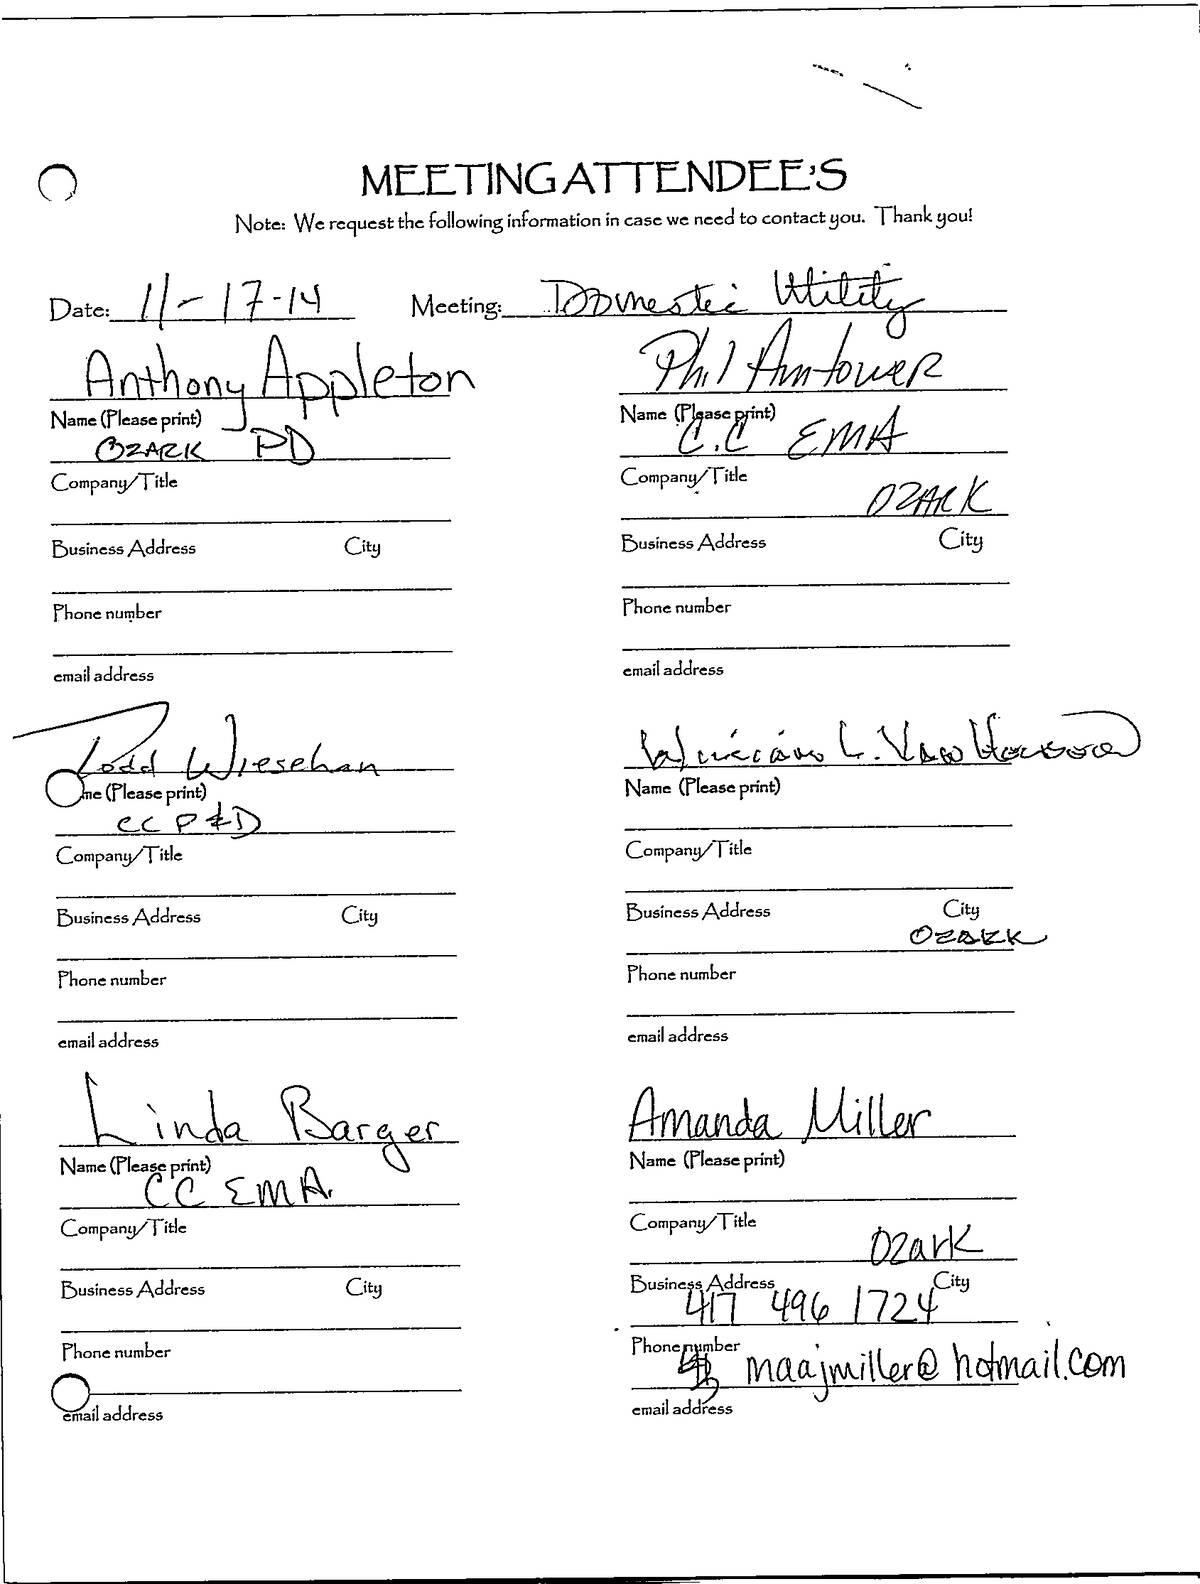 MEETING ATTENDEE'S
Note: We request the following information in case we need to contact you. Thank you!
Date: 11-17-14 Meeting: Domestic Utility
Anthony Appleton
Name (Please print)
OZARK PD
Company/Title
Business Address City
Phone number
email address
Phil Amtower
Name (Please print)
C.C EMA
Company/Title
OZARK
Business Address City
Phone number
email address
Todd Wiesehan
me (Please print)
CC P&D
Company/Title
Business Address City
Phone number
email address
L. Van
Name (Please print)
Company/Title
Business Address City
OZARK
Phone number
email address
Linda Barger
Name (Please print)
CC EMA.
Company/Title
Business Address City
Phone number
email address
Amanda Miller
Name (Please print)
Company/Title
Ozark
Business Address City
417 496 1724
Phone number
maajmiller@hotmail.com
email address